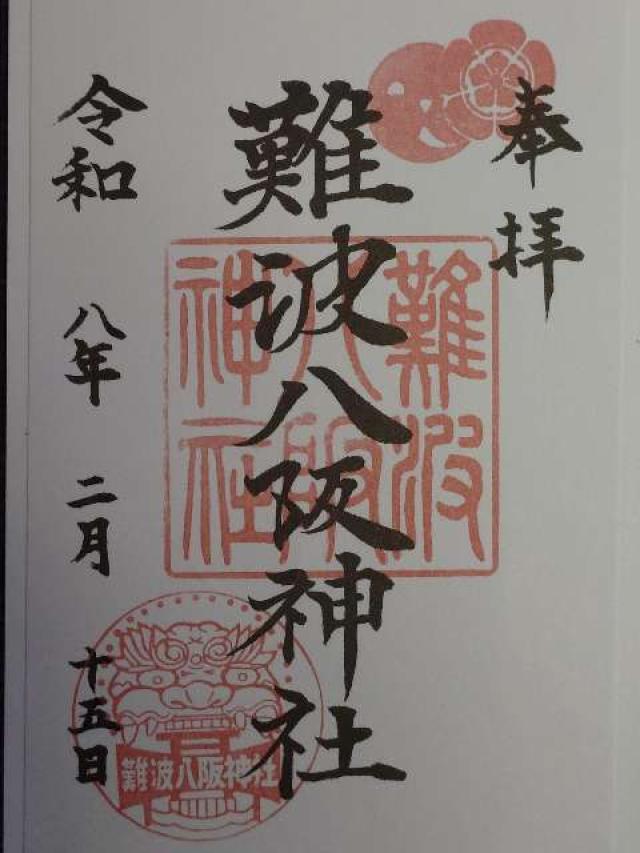 奉拝
難波八阪神社
難波八阪神社
難波八阪神社
令和 八年 二月 十五日